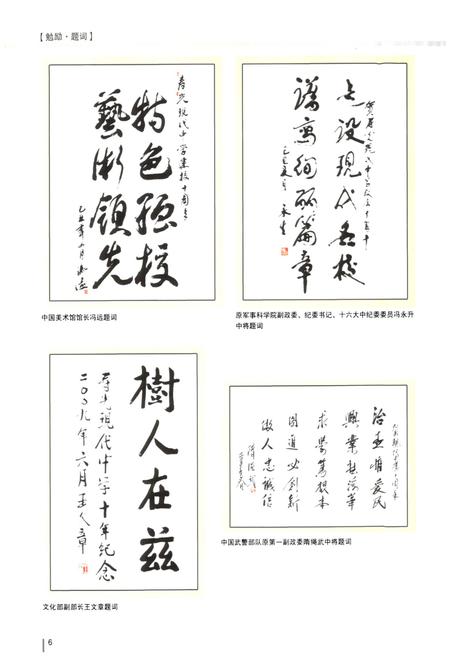 【勉励·题词】
寿光现代中学建校十周年
特色强校
艺术领先
中国美术馆馆长冯远题词
贺寿光现代中学成立十周年
建设现代名校
谱写绚丽篇章
永生
原军事科学院副政委、纪委书记、十六大中纪委委员冯永升
中将题词
樹人在兹
寿光现代中学十年纪念
二〇〇九年六月王文章
文化部副部长王文章题词
治查唯爱民
興業
求學篤根本
図進必創新
做人忠誠信
中国武警部队原第一副政委隋绳武中将题词
6